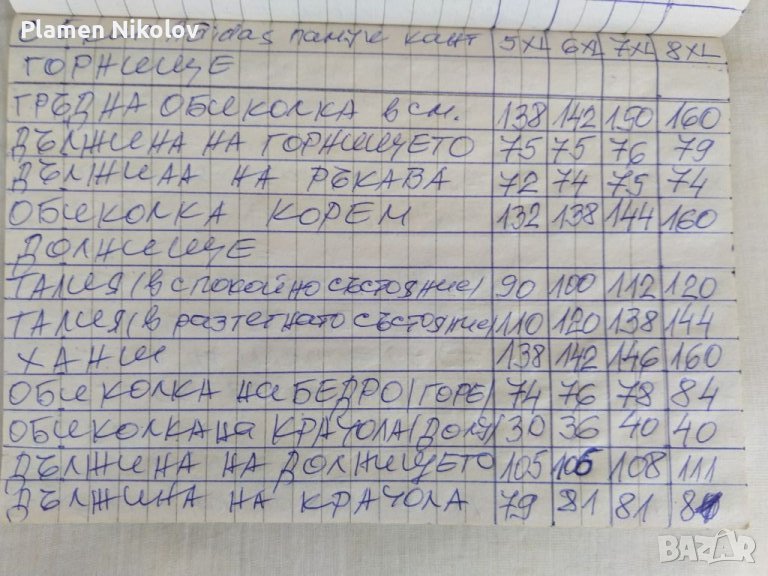 Plamen Nikolov
Adidas памук кант 5XL 6XL 7XL 8XL
ГОРНИЩЕ
ГРЪДНА ОБИКОЛКА в см. 138 142 150 160
ДЪЛЖИНА НА ГОРНИЩЕТО 75 75 76 79
ДЪЛЖИНА НА РЪКАВА 72 74 75 74
ОБИКОЛКА КОРЕМ 132 138 144 160
ДОЛНИЩЕ
ТАЛИЯ (в спокойно състояние) 90 100 112 120
ТАЛИЯ (в разтегнато състояние) 110 120 138 144
ХАНШ 138 142 146 160
ОБИКОЛКА на БЕДРО (ГОРЕ) 74 76 78 84
ОБИКОЛКА на КРАЧОЛА (ДОЛУ) 30 36 40 40
ДЪЛЖИНА НА ДОЛНИЩЕТО 105 106 108 111
ДЪЛЖИНА НА КРАЧОЛА 79 81 81
BAZAR.BG